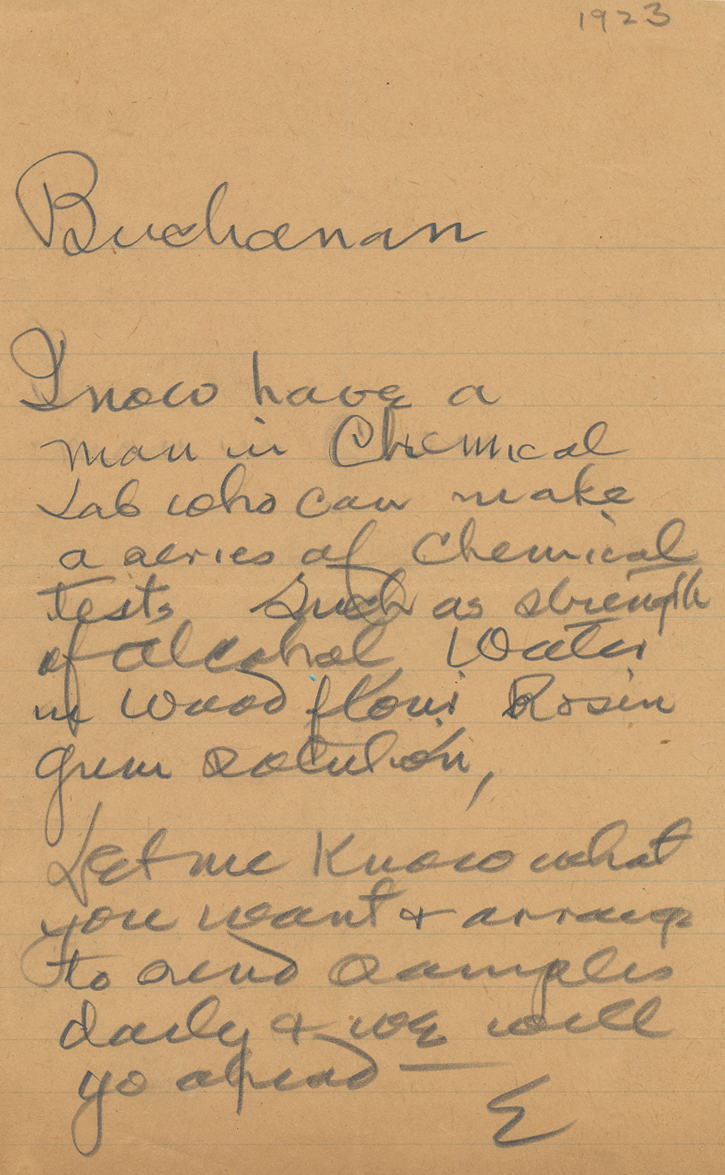 1923
Buchanan
I now have a
man in Chemical
Lab who can make
a series of Chemical
tests, Such as strength
of alcohol, Water
in Wood flour Rosin
gum solution,
Let me Know what
you want & arrange
to send samples
daily & we will
go ahead —
E